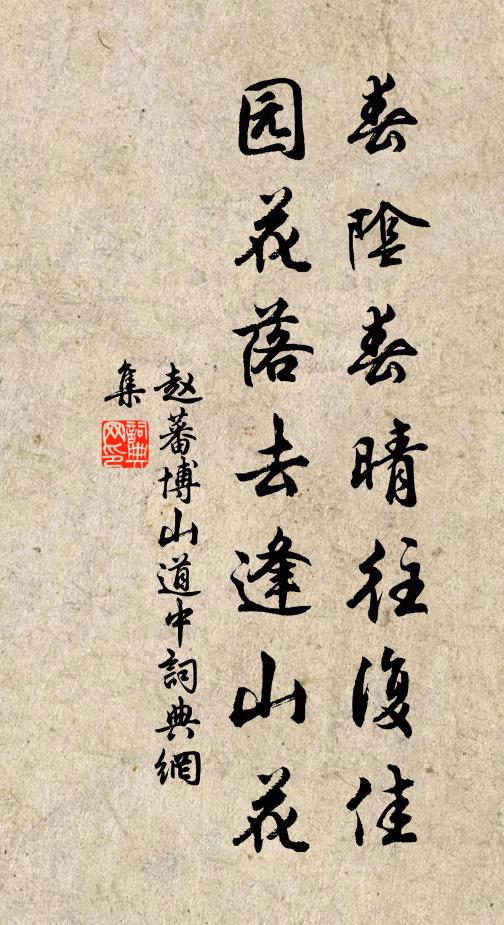 春陰春晴往復佳
园花落去逢山花
赵蕃博山道中詞典網
集
詞典
网印